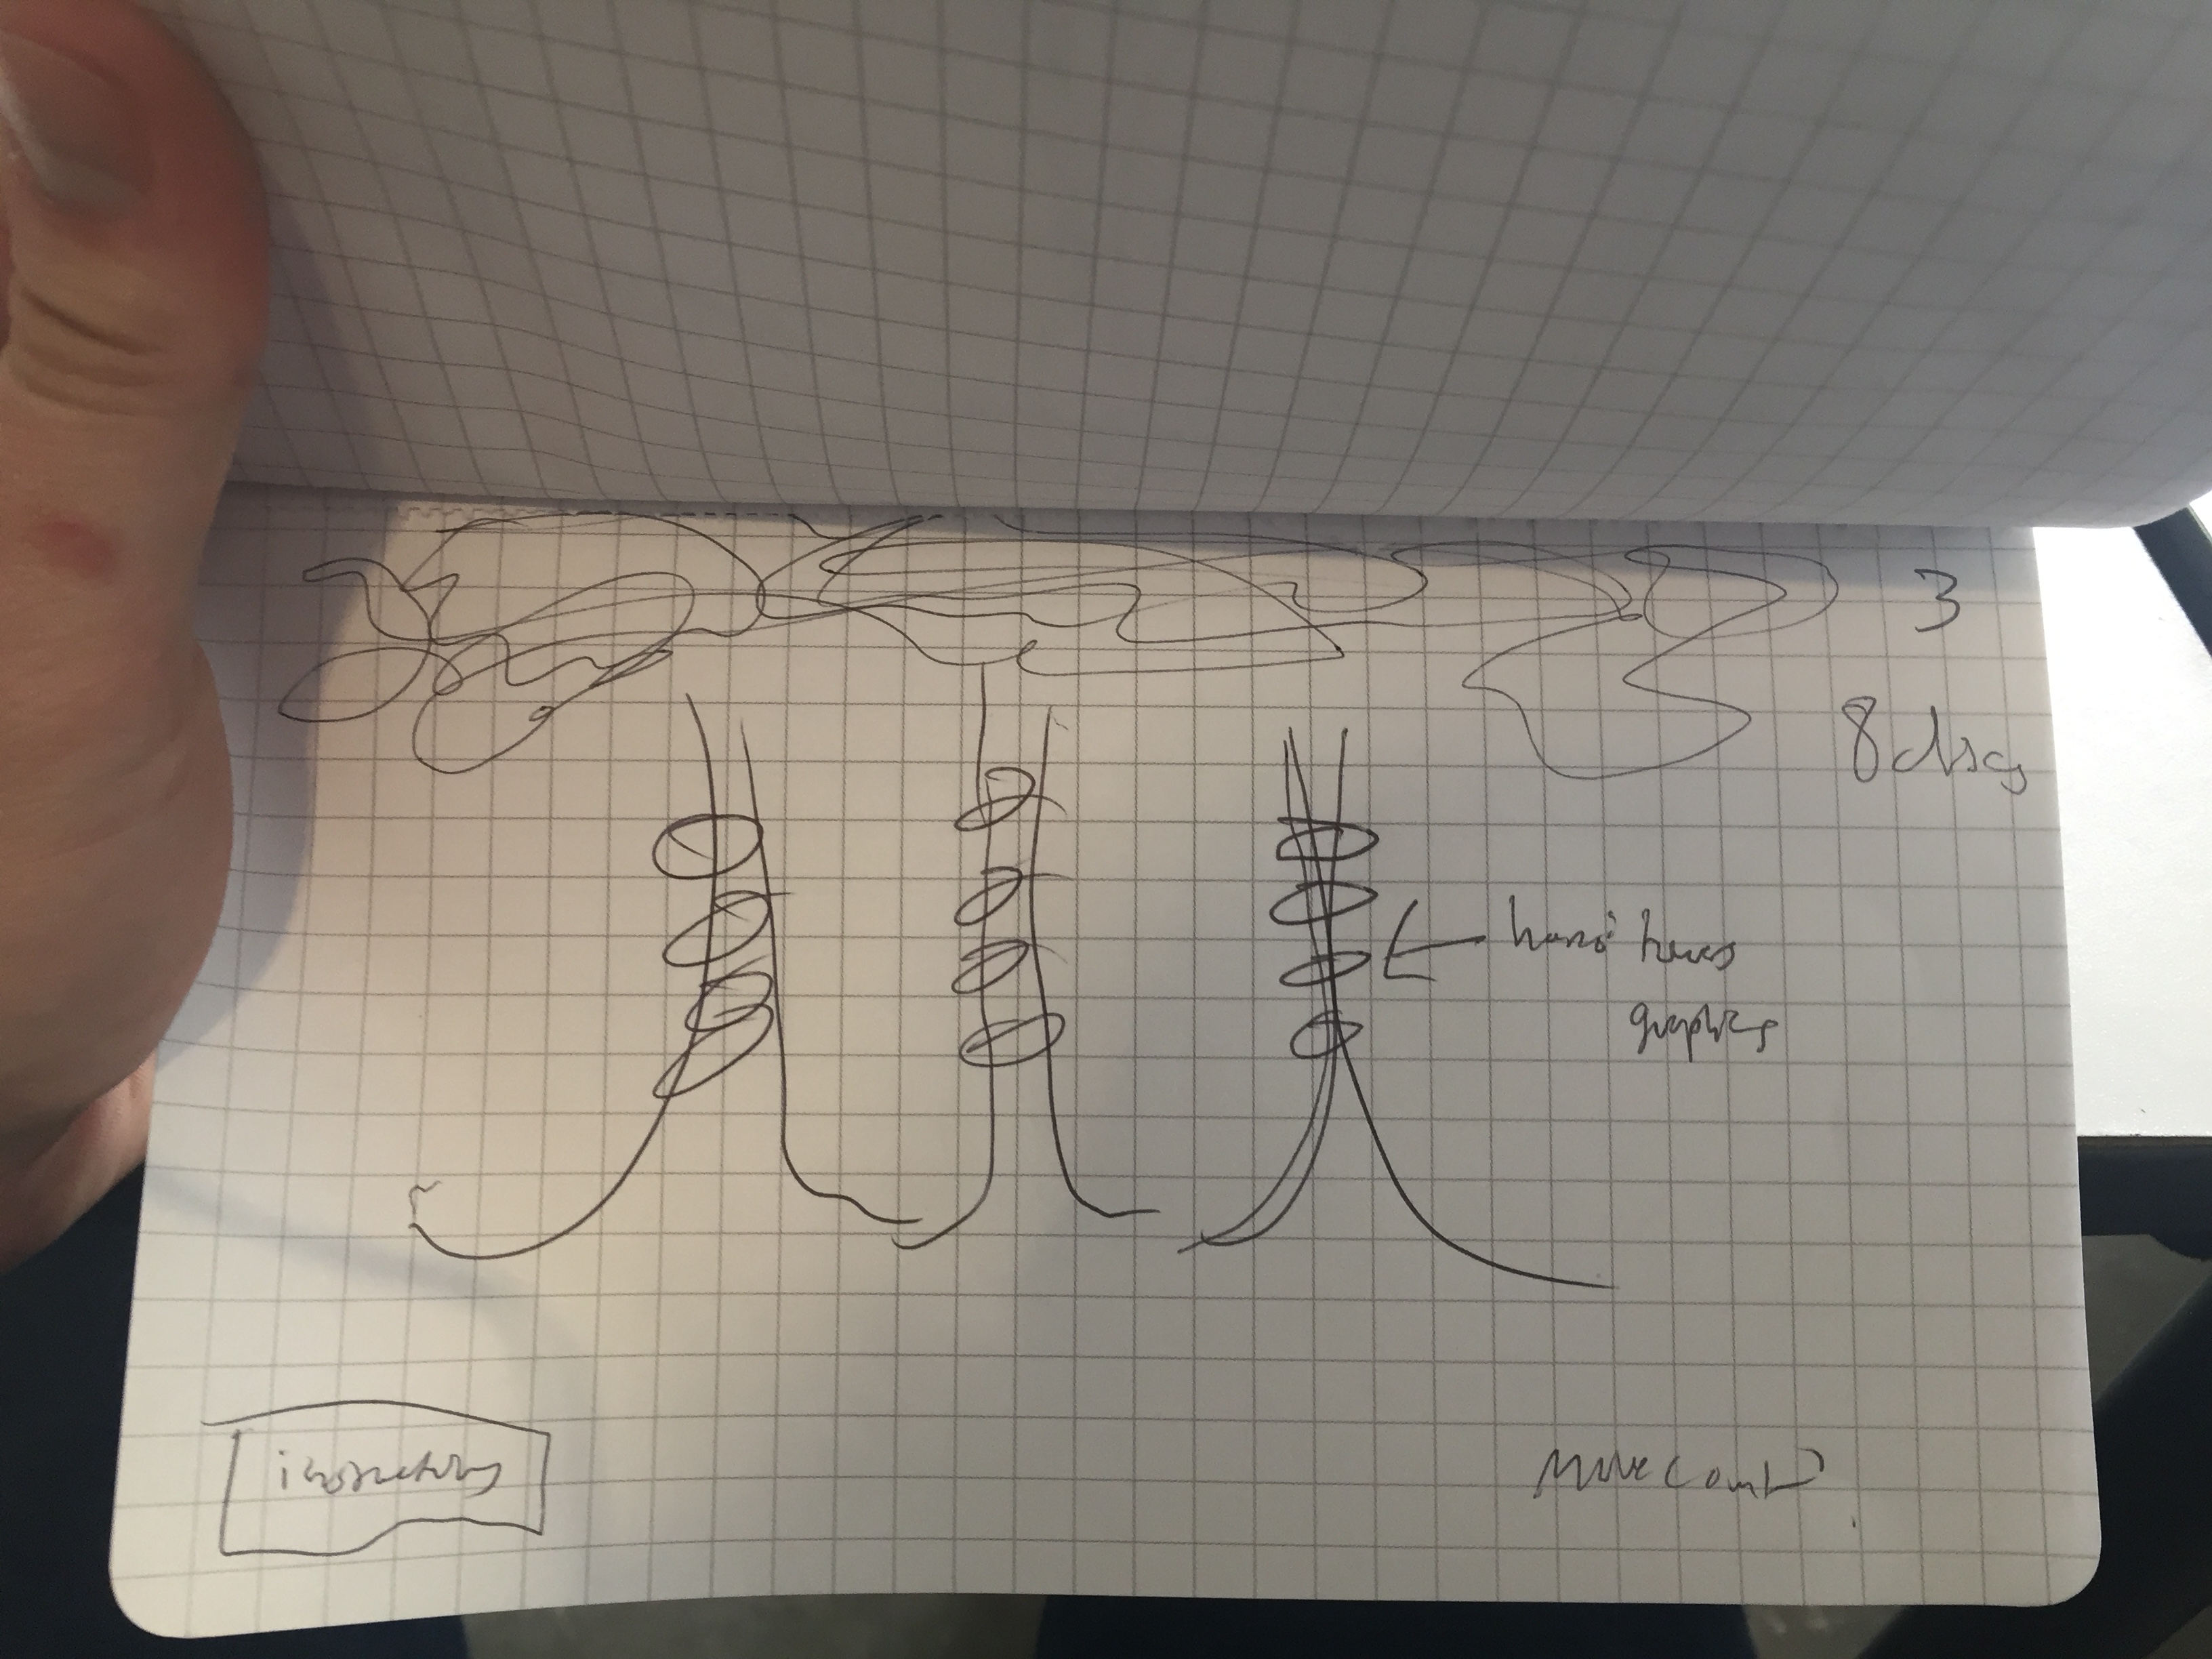 3
8 discs
hanoi towers
graphics
instructions
Move Count